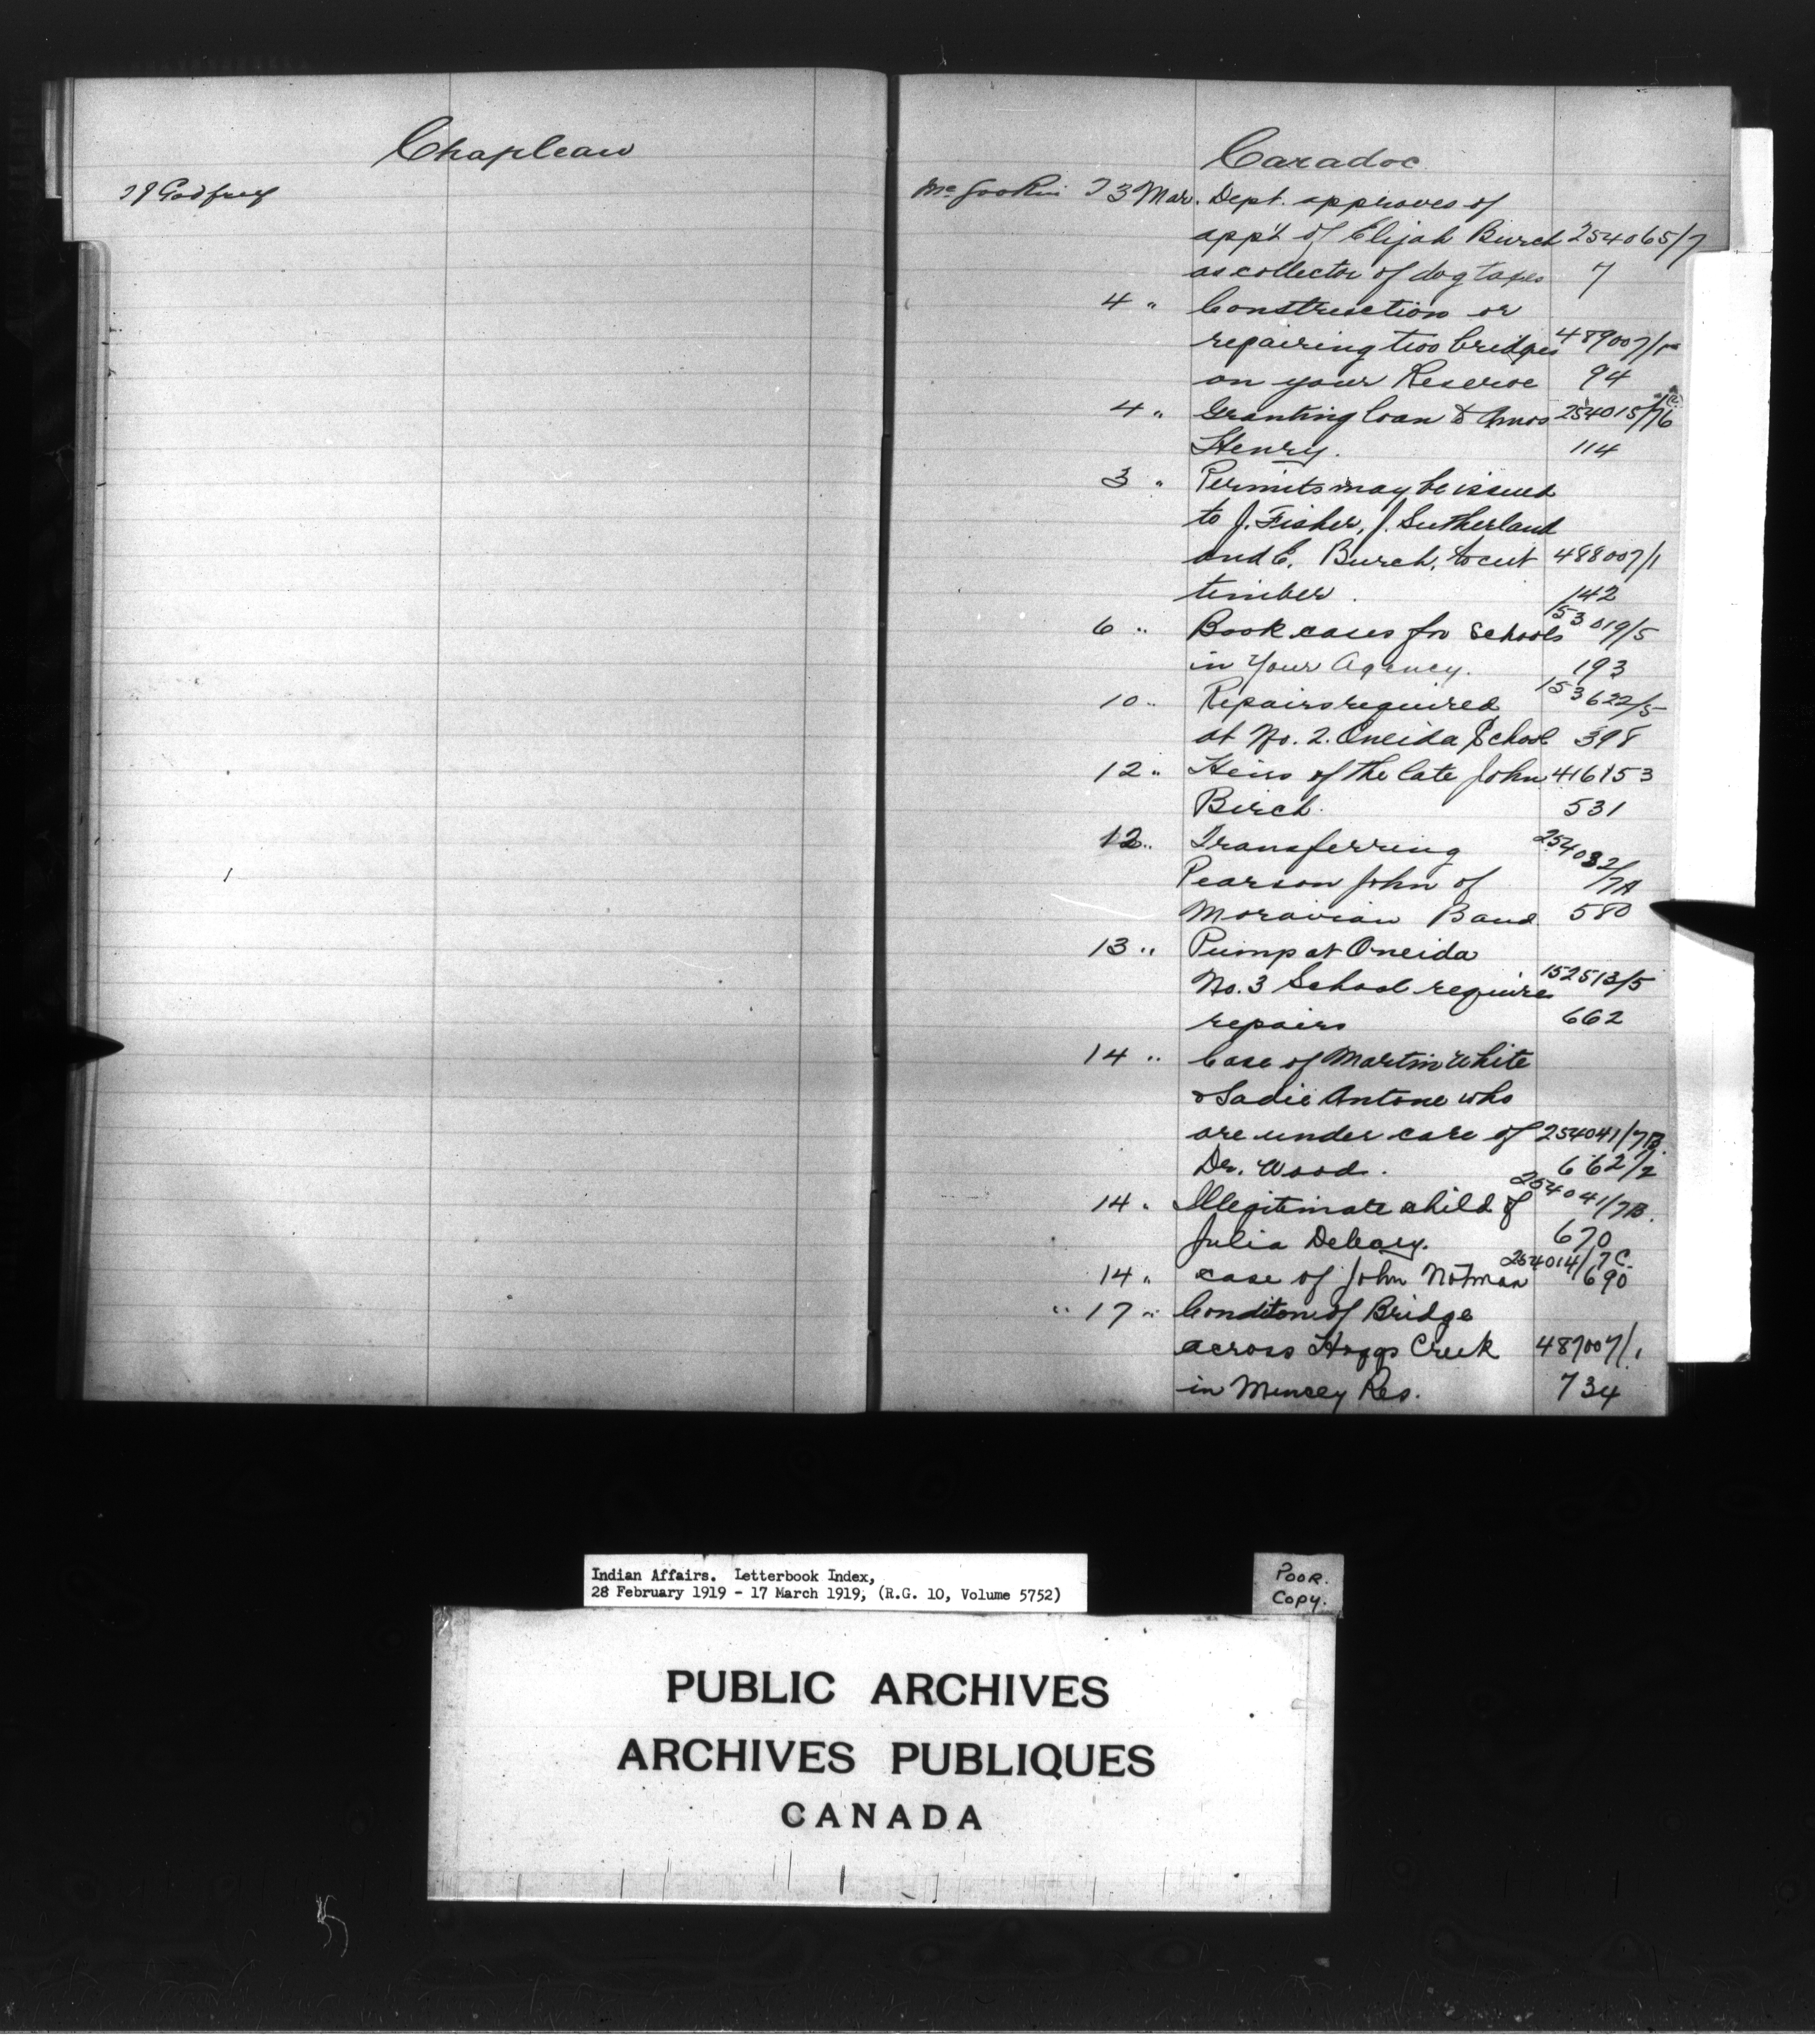 Chapleau
Godfrey
Caradoc
3 Mar. Dept. approves of
app't of Elijah Burch 254065/7
as collector of dog taxes 7
4 " Construction or
repairing two bridges 489007/
on your Reserve 94
4 " Granting loan to Amos 254015/
Henry. 114
3 " Permits may be issued
to J. Fisher, J. Sutherland
and E. Burch, to cut 488007/1
timber. 142
6 " Book cases for Schools 153019/5
in Your Agency. 193
10 " Repairs required 153622/5
at No. 2. Oneida School 398
12 " Heirs of the late John 416153
Birch. 531
12 " Transferring 254032
Pearson John of /7A
Moravian Band 580
13 " Pump at Oneida
No. 3 School requires 152513/5
repairs 662
14 " Case of Martin White
& Sadie Antone who
are under care of 254041/7B.
Dr. Wood. 662/2
14 " Illegitimate child of 254041/7B.
Julia Deleary. 670
14 " case of John Notman 254014/7C. 690
" 17 " Conditon of Bridge
across Hoggs Creek 487007/1
in Muncey Res. 734
Indian Affairs. Letterbook Index,
28 February 1919 - 17 March 1919, (R.G. 10, Volume 5752)
POOR.
COPY.
PUBLIC ARCHIVES
ARCHIVES PUBLIQUES
CANADA